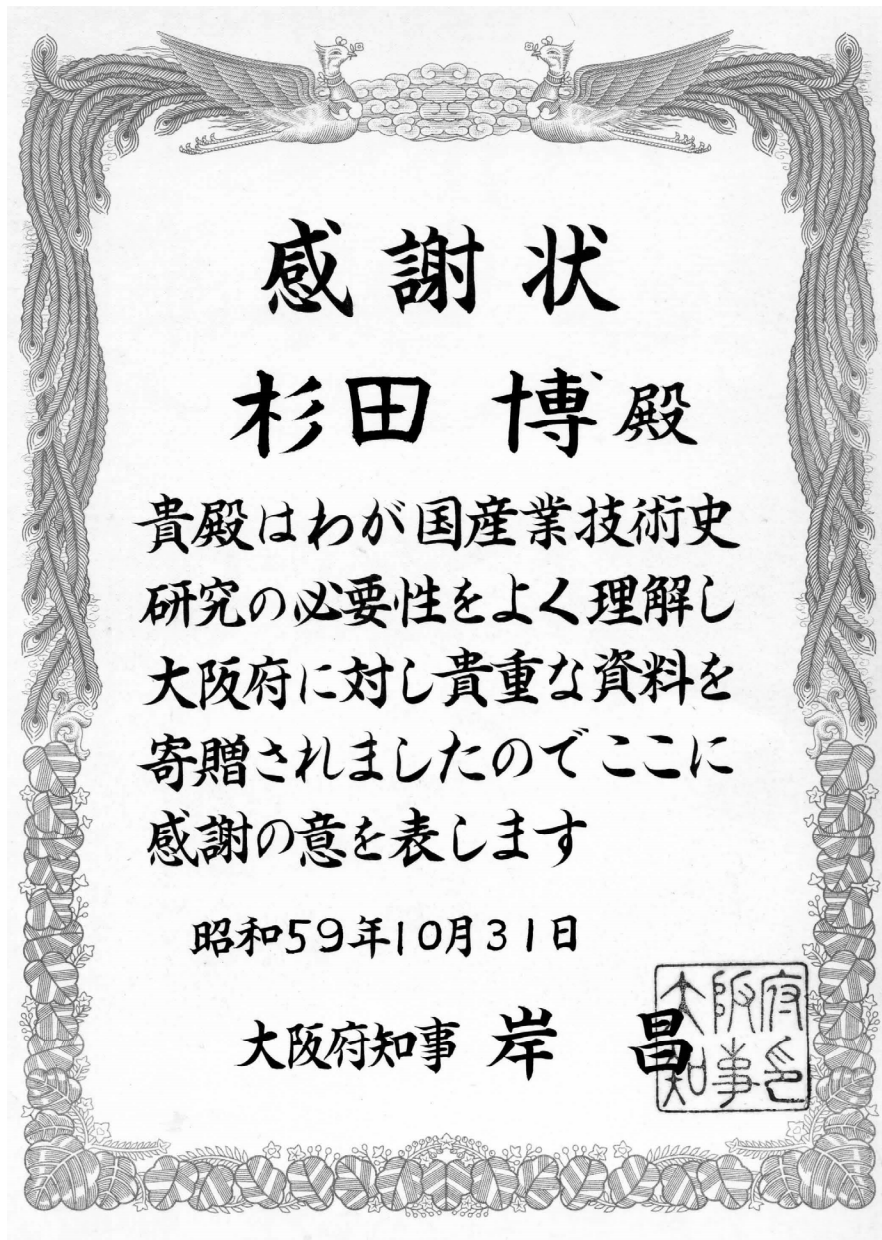 感謝状
杉田 博殿
貴殿はわが国産業技術史
研究の必要性をよく理解し
大阪府に対し貴重な資料を
寄贈されましたのでここに
感謝の意を表します
昭和59年10月31日
大阪府知事 岸 昌
大阪府
知事印